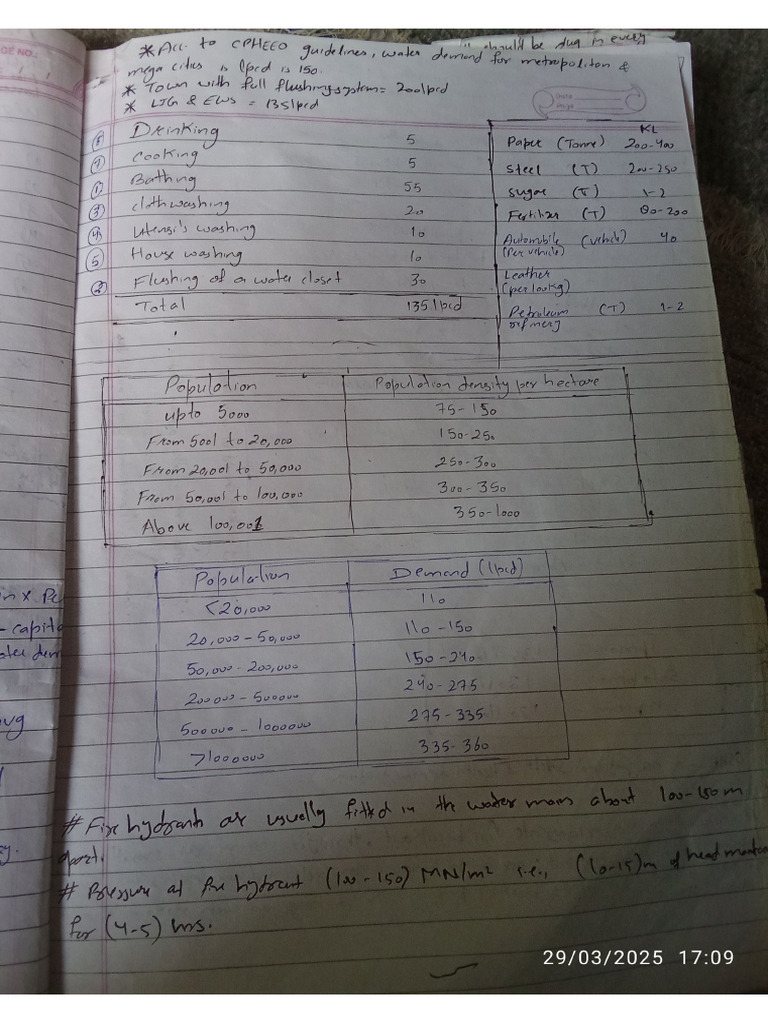 GE NO.:
should be dug in every
* Acc. to CPHEEO guidelines, water demand for metropoliton &
mega cities is lpcd is 150.
* Town with full flushing system = 200lpcd
* LIG & EWS = 135lpcd
⑥ Drinking 5
⑦ Cooking 5
① Bathing 55
③ cloth washing 20
④ Utensi's washing 10
⑤ House washing 10
② Flushing of a water closet 30
Total 135lpcd
KL
Paper (Tonne) 200-400
Steel (T) 200-250
Sugar (T) 1-2
Fertilizer (T) 80-200
Automobile (vehicle) 40
(Per vehicle)
Leather
(per 100kg)
Petroleum (T) 1-2
refinery
Population Population density per hectare
upto 5000 75-150
From 5001 to 20,000 150-250
From 20,001 to 50,000 250-300
From 50,001 to 100,000 300-350
Above 100,001 350-1000
Population Demand (lpcd)
<20,000 110
20,000-50,000 110-150
50,000-200,000 150-240
200000-500000 240-275
500000-1000000 275-335
>1000000 335-360
- capita
# Fire hydrants are usually fitted in the water mains about 100-150m
apart.
# Pressure at fire hydrant (100-150) MN/m² i.e., (10-15)m of head
for (4-5) hrs.
29/03/2025 17:09